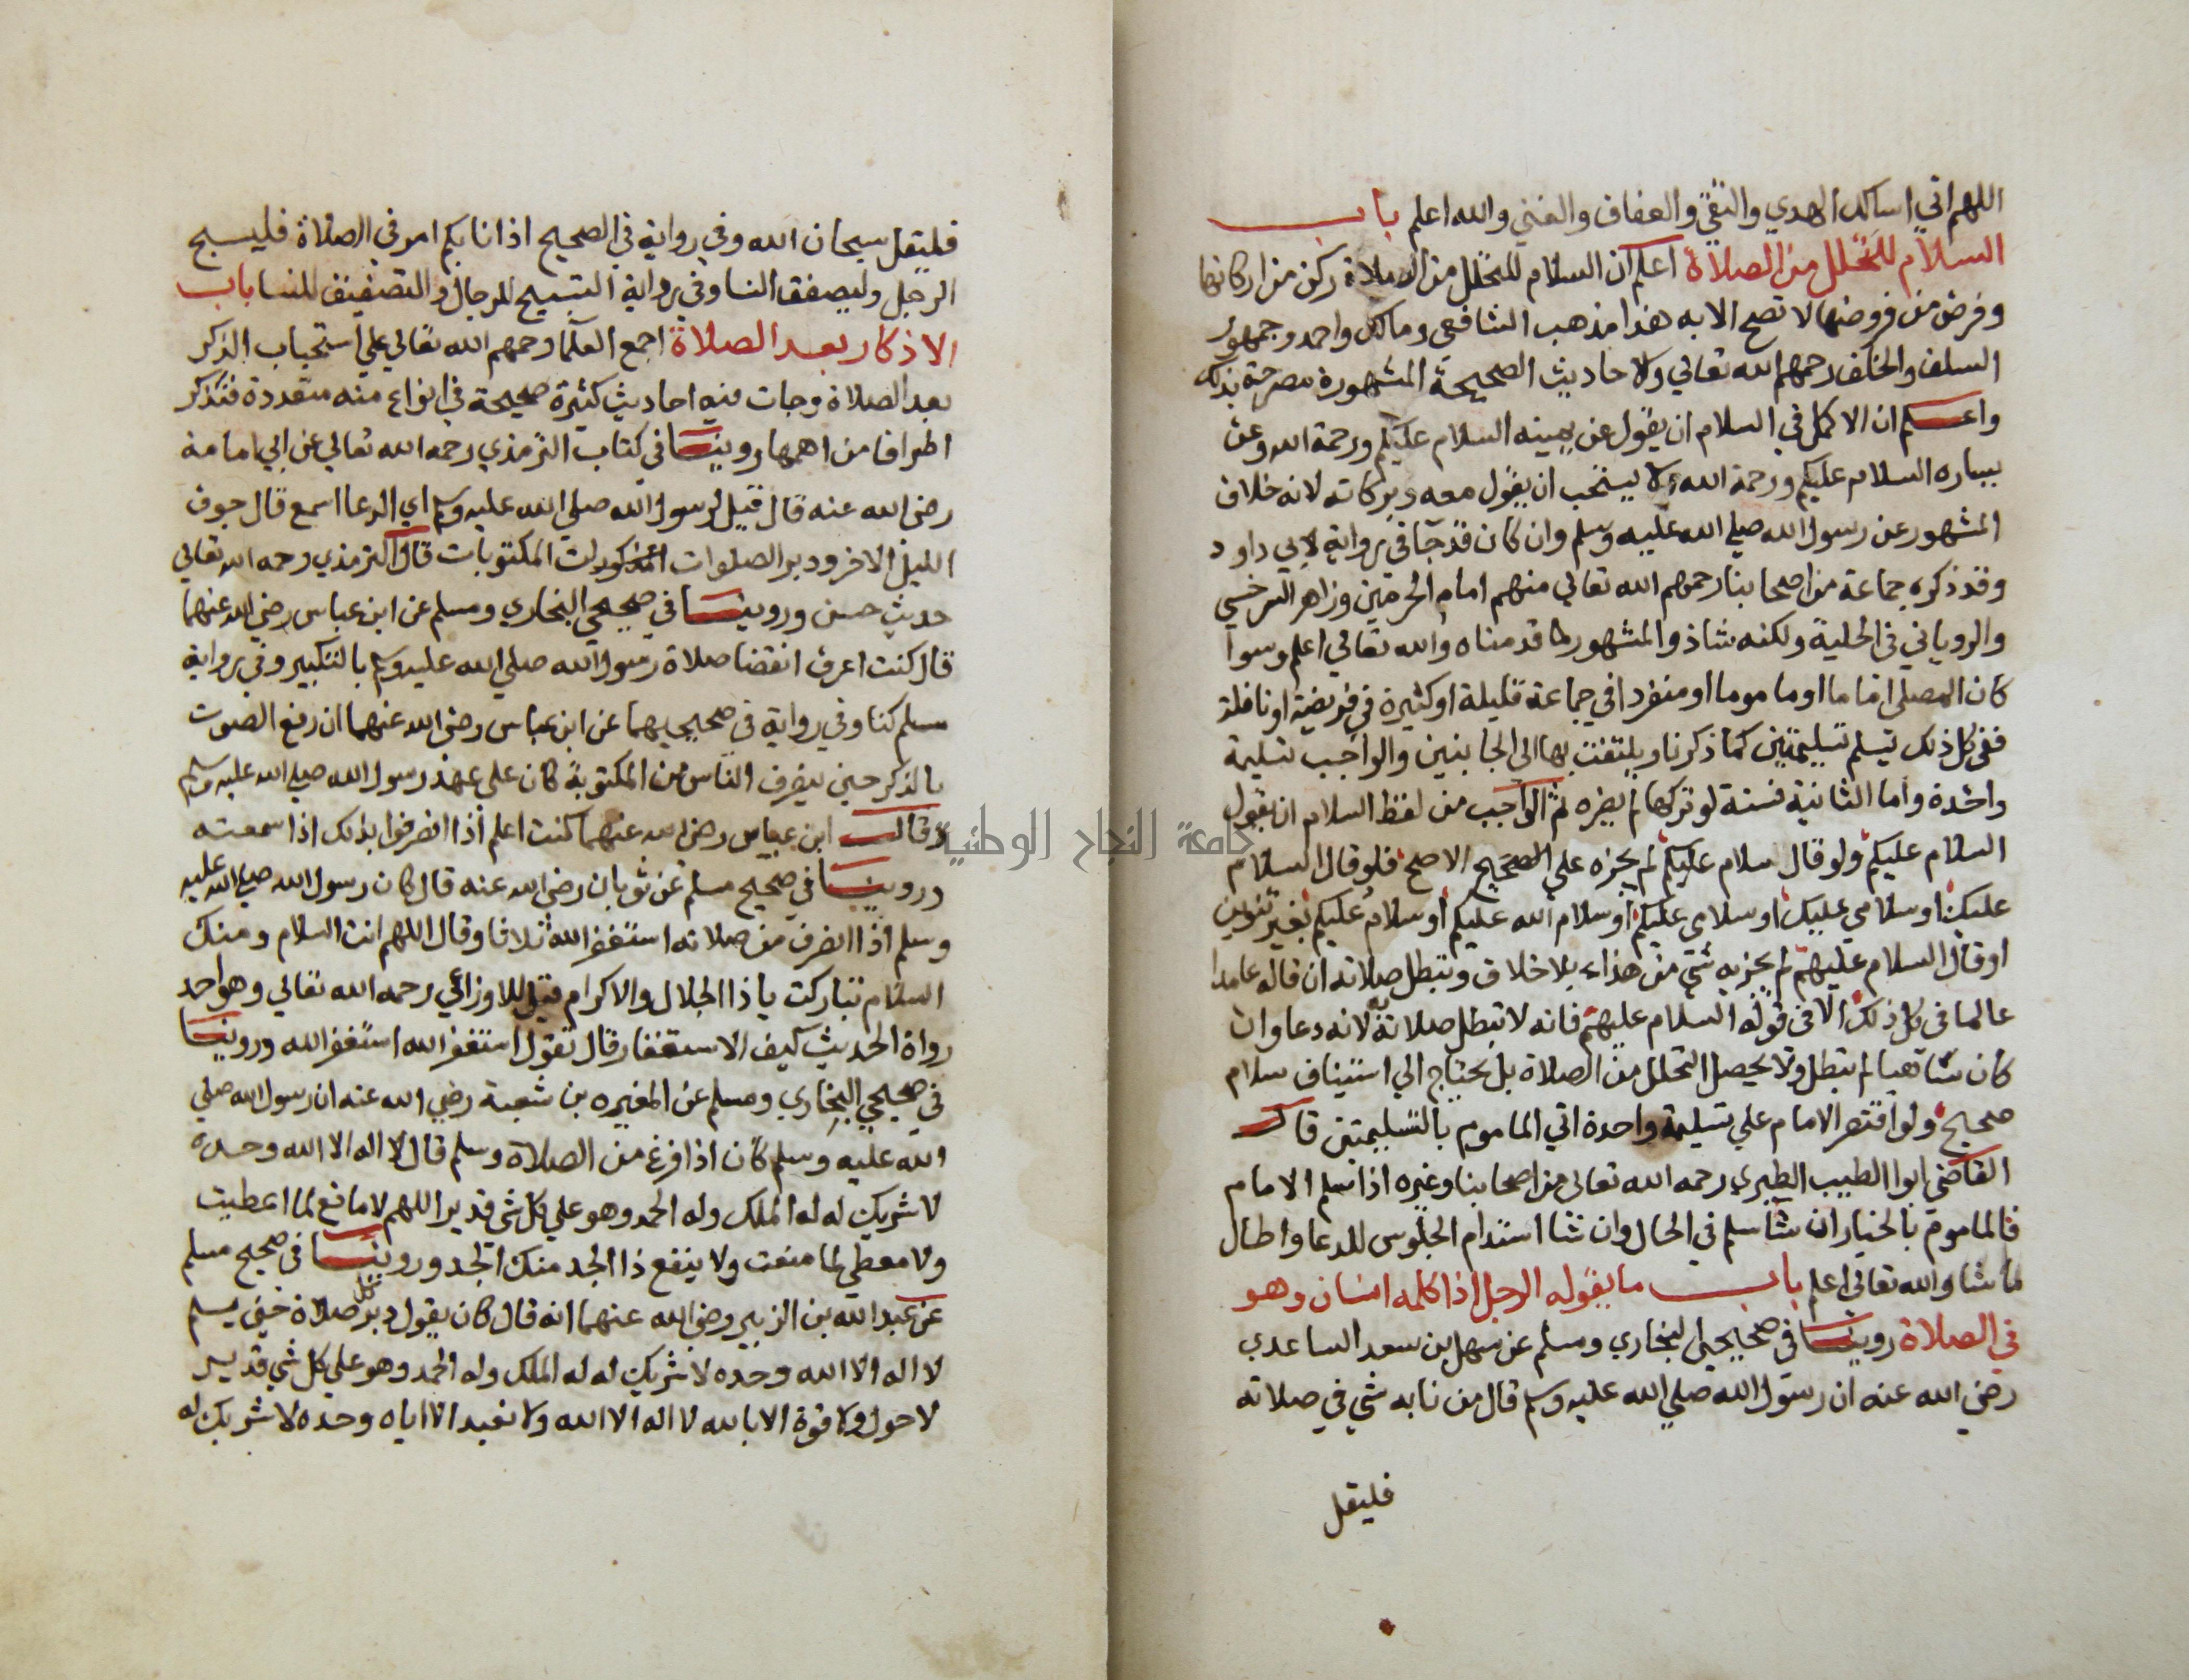 اللهم اني اسالك الهدي والتقي والعفاف والغني والله اعلم باب
السلام للتحلل من الصلاة اعلم ان السلام للتحلل من الصلاة ركن من اركانها
وفرض من فروضها لا تصح الا به هذا مذهب الشافعي ومالك واحمد وجمهور
السلف والخلف رحمهم الله تعالي والاحاديث الصحيحة المشهورة مصرحة بذلك
واعلم ان الاكمل في السلام ان يقول عن يمينه السلام عليكم ورحمة الله وعن
يساره السلام عليكم ورحمة الله ولا يستحب ان يقول معه وبركاته لانه خلاف
المشهور عن رسول الله صلي الله عليه وسلم وان كان قد جا في رواية لابي داود
وقد ذكره جماعة من اصحابنا رحمهم الله تعالي منهم امام الحرمين وزاهر السرخسي
والروياني في الحلية ولكنه شاذ والمشهور ما قدمناه والله تعالي اعلم وسوا
كان المصلي اماما او ماموما او منفردا في جماعة قليلة او كثيرة في فريضة او نافلة
ففي كل ذلك يسلم تسليمتين كما ذكرنا ويلتفت بهما الي الجانبين والواجب تسليمة
واحدة واما الثانية فسنة لو تركها لم يضره ثم الواجب من لفظ السلام ان يقول
السلام عليكم ولو قال سلام عليكم لم يجزه علي الصحيح الاصح فلو قال السلام
عليك او سلامي عليك او سلامي عليكم او سلام الله عليكم او سلام عليكم بغير تنوين
او قال السلام عليهم لم يجزيه شي من هذا بلا خلاف وتبطل صلاته ان قاله عامدا
عالما في كل ذلك الا في قوله السلام عليهم فانه لا تبطل صلاته به لانه دعا وان
كان ساهيا لم تبطل ولا يحصل التحلل من الصلاة بل يحتاج الي استيناف سلام
صحيح ولو اقتصر الامام علي تسليمة واحدة اتي الماموم بالتسليمتين قال
القاضي ابوا الطيب الطبري رحمه الله تعالي من اصحابنا وغيره اذا سلم الامام
فالماموم بالخيار ان شا سلم في الحال وان شا استدام الجلوس للدعا واطال
ما شا والله تعالي اعلم باب ما يقوله الرجل اذا كلمه انسان وهو
في الصلاة روينا في صحيحي البخاري ومسلم عن سهل بن سعد الساعدي
رضي الله عنه ان رسول الله صلي الله عليه وسلم قال من نابه شي في صلاته
فليقل
فليقل سبحان الله وفي رواية في الصحيح اذا نابكم امر في الصلاة فليسبح
الرجل وليصفق النسا وفي رواية التسبيح للرجال والتصفيق للنسا باب
الاذكار بعد الصلاة اجمع العلما رحمهم الله تعالي علي استحباب الذكر
بعد الصلاة وجات فيه احاديث كثيرة صحيحة في انواع منه متعددة فنذكر
اطرافا من اهمها روينا في كتاب الترمذي رحمه الله تعالي عن ابي امامة
رضي الله عنه قال قيل لرسول الله صلي الله عليه وسلم اي الدعا اسمع قال جوف
الليل الاخر ودبر الصلوات المكتوبات قال الترمذي رحمه الله تعالي
حديث حسن وروينا في صحيحي البخاري ومسلم عن ابن عباس رضي الله عنهما
قال كنت اعرف انقضا صلاة رسول الله صلي الله عليه وسلم بالتكبير وفي رواية
مسلم كنا وفي رواية في صحيحيهما عن ابن عباس رضي الله عنهما ان رفع الصوت
بالذكر حين ينصرف الناس من المكتوبة كان علي عهد رسول الله صلي الله عليه وسلم
وقال ابن عباس رضي الله عنهما كنت اعلم اذا انصرفوا بذلك اذا سمعته
وروينا في صحيح مسلم عن ثوبان رضي الله عنه قال كان رسول الله صلي الله عليه
وسلم اذا انصرف من صلاته استغفر الله ثلاثا وقال اللهم انت السلام ومنك
السلام تباركت يا ذا الجلال والاكرام قيل للاوزاعي رحمه الله تعالي وهو احد
رواة الحديث كيف الاستغفار قال تقول استغفر الله استغفر الله وروينا
في صحيحي البخاري ومسلم عن المغيره بن شعبة رضي الله عنه ان رسول الله صلي
الله عليه وسلم كان اذا فرغ من الصلاة وسلم قال لا اله الا الله وحده
لا شريك له له الملك وله الحمد وهو علي كل شي قدير اللهم لا مانع لما اعطيت
ولا معطي لما منعت ولا ينفع ذا الجد منك الجد وروينا في صحيح مسلم
عن عبد الله بن الزبير رضي الله عنهما انه قال كان يقول دبر كل صلاة حين يسلم
لا اله الا الله وحده لا شريك له له الملك وله الحمد وهو علي كل شي قدير
لا حول ولا قوة الا بالله لا اله الا الله ولا نعبد الا اياه وحده لا شريك له
جامعة النجاح الوطنية